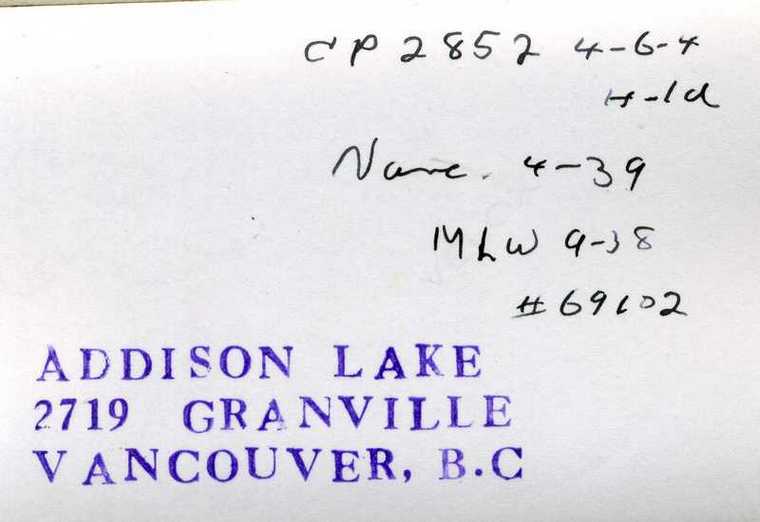 CP 2852 4-6-4
H-1d
Vanc. 4-39
MLW 9-38
#69102
ADDISON LAKE
2719 GRANVILLE
VANCOUVER, B.C